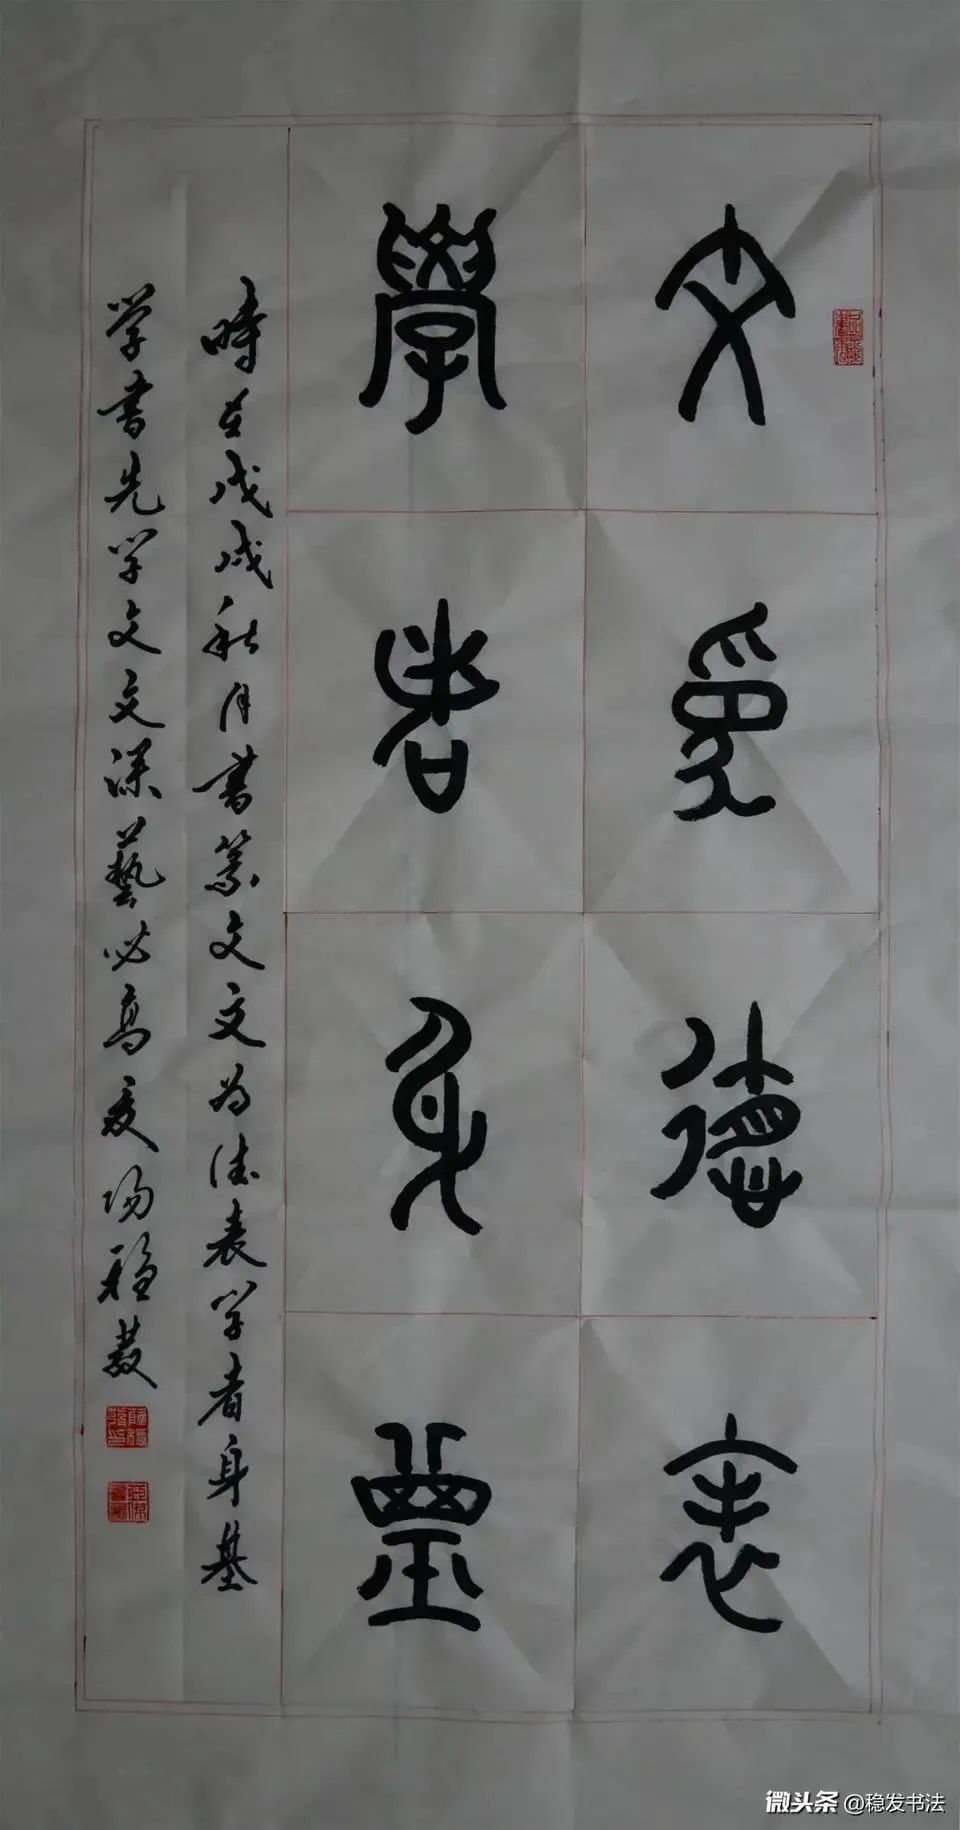 文為德表
學者身基
時在戊戌秋月書篆文文为德表学者身基
学書先学文文深藝必高夏阳穩發
微头条 @稳发书法